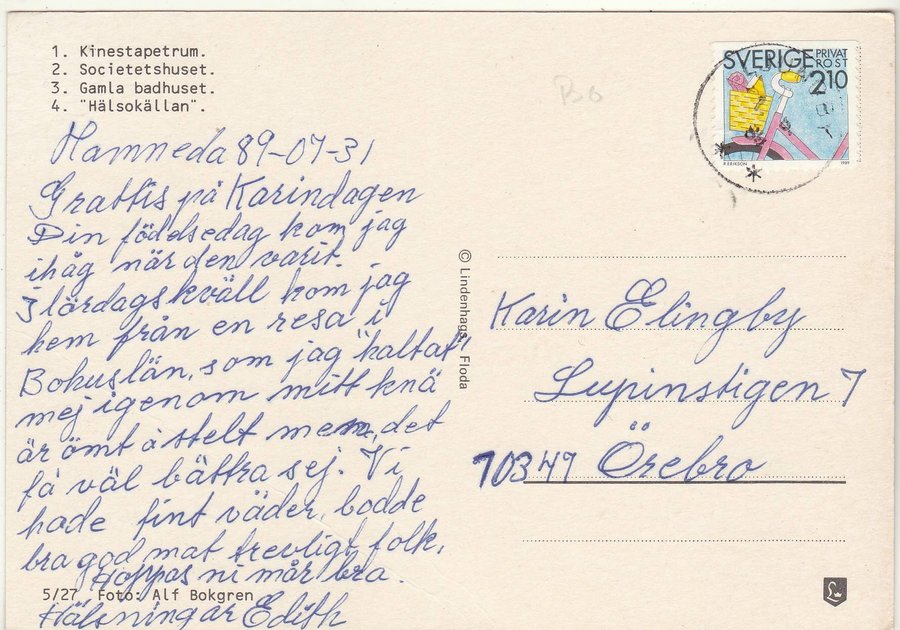 1. Kinestapetrum.
2. Societetshuset.
3. Gamla badhuset.
4. "Hälsokällan".
Hamneda 89-07-31
Grattis på Karindagen
Din föddsedag kom jag
ihåg när den varit.
I lördagskväll kom jag
hem från en resa i
Bohuslän, som jag "haltat"
mej igenom mitt knä
är ömt o stelt men, det
få väl bättra sej. Vi
hade fint väder, bodde
bra god mat trevligt folk,
Hoppas ni mår bra.
5/27 Foto: Alf Bokgren
Hälsningar Edith
© Lindenhags, Floda
B6
SVERIGE PRIVAT
POST
210
R. ERIKSON 1989
Karin Elingby
Lupinstigen 7
70349 Örebro
L